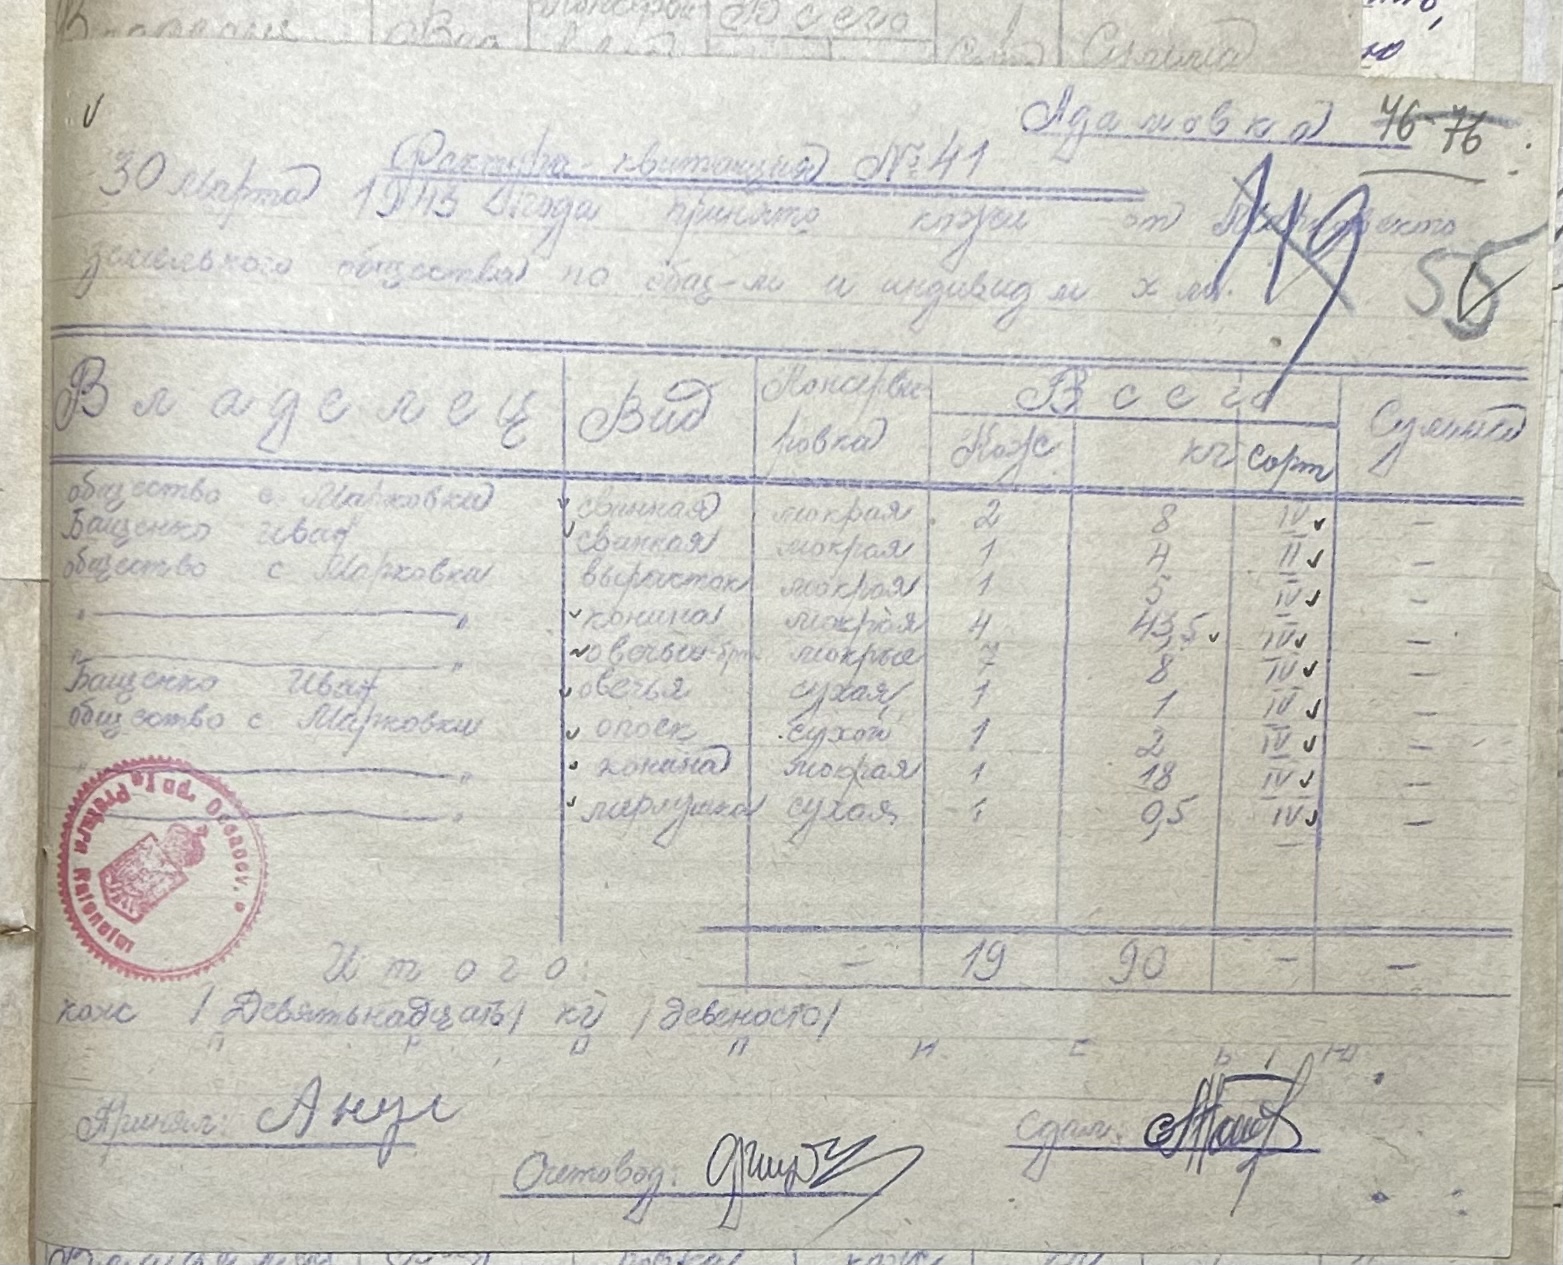 Адамовка 76 76
Фактура-квитанция № 41
30 марта 1943 года принято кожи от Марковского
119
55
земельного общества по общ-м и индивид м х м.
Владелец Вид Консерви- Всего Сумма
ровка Кож кг сорт
общество с. Марковки свинная мокрая 2 8 IV –
Бащенко Иван свинная мокрая 1 4 II –
общество с Марковки выросток мокрая 1 5 IV –
" — " конина мокрая 4 43,5 IV –
" — " овечьи мокрые 7 8 IV –
Бащенко Иван овечья сухая 1 1 IV –
общество с Марковки опоек сухой 1 2 IV –
" — " конина мокрая 1 18 IV –
" — " мерлушка сухая 1 0,5 IV –
Итого: – 19 90 – –
кож /Девятьнадцать/ кг /девеносто/
Принял:
Сдал:
Счетовод: